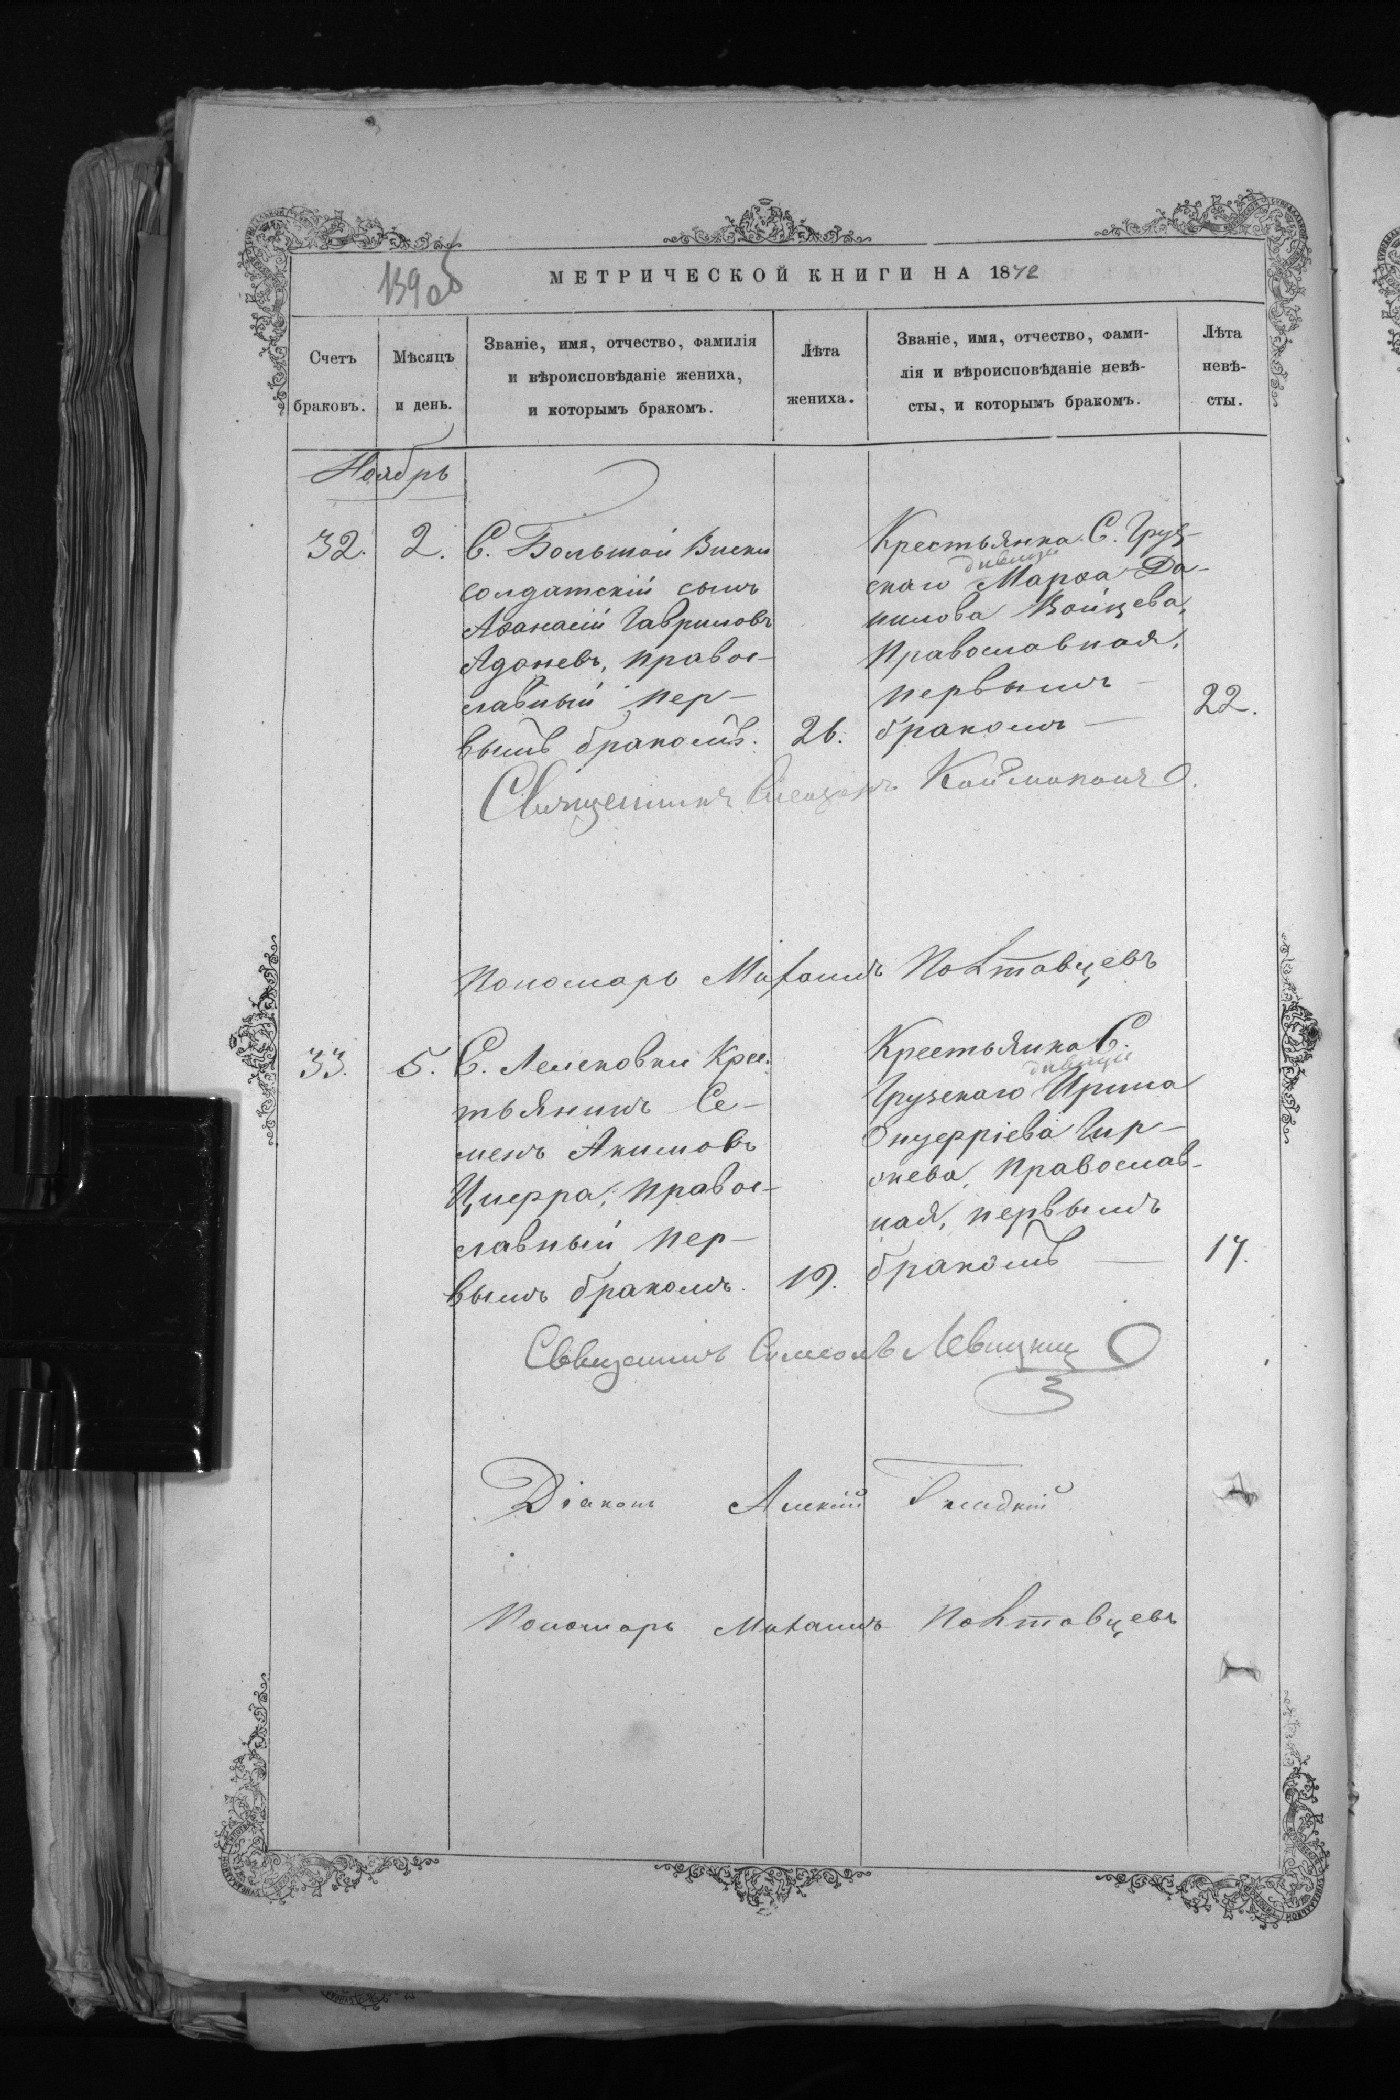 139 об
МЕТРИЧЕСКОЙ КНИГИ НА 1872
Счетъ
браковъ.
Мѣсяцъ
и день.
Званіе, имя, отчество, фамилія
и вѣроисповѣданіе жениха,
и которымъ бракомъ.
Лѣта
жениха.
Званіе, имя, отчество, фами-
лія и вѣроисповѣданіе невѣ-
сты, и которымъ бракомъ.
Лѣта
невѣ-
сты.
Ноябрь
32.
2.
С. Большой Виски
солдатскій сынъ
Аѳанасій Гавриловъ
Адоневъ, правос-
лавный пер-
вымъ бракомъ.
26.
Крестьянка С. Груз-
скаго девица Марѳа Да-
нилова Войцева,
Православная,
первымъ
бракомъ
22.
Священникъ Кайманаил
Пономарь Михаилъ Полтавцевъ
33.
5.
С. Лелековки Крес-
тьянинъ Се-
менъ Акимовъ
Циерра, правос-
лавный пер-
вымъ бракомъ.
19.
Крестьянка С.
Грузскаго девица Ирина
Онуфріева Гир-
нева, Православ-
ная, первымъ
бракомъ
17.
Священникъ Симеонъ Левицкій
Діаконъ Алексій Гладкій
Пономарь Михаилъ Полтавцевъ